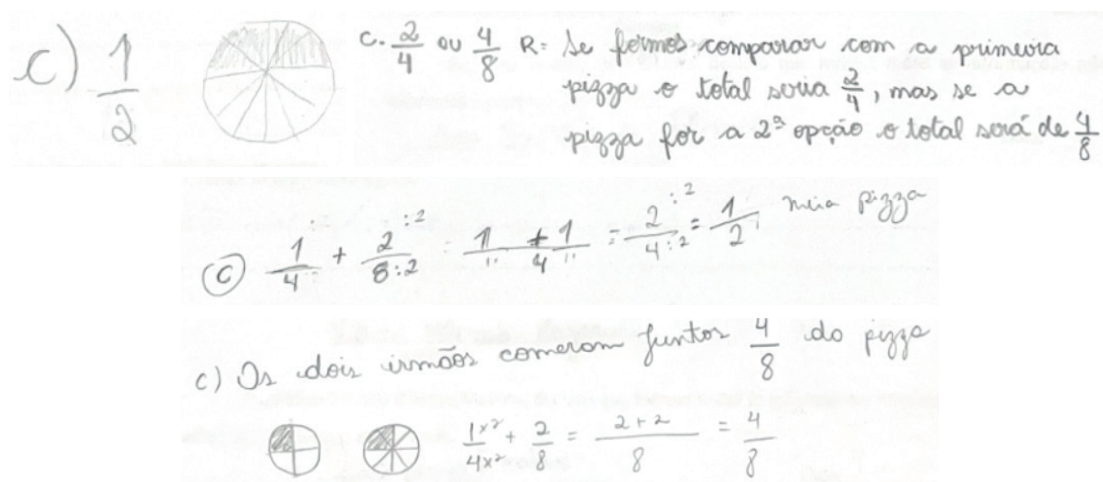 c) 1/2
c. 2/4 ou 4/8 R: Se formos comparar com a primeira
pizza o total seria 2/4, mas se a
pizza for a 2ª opção o total será de 4/8
c 1/4 + 2:2/8:2 = 1 + 1/4 = 2:2/4:2 = 1/2 meia pizza
c) Os dois irmãos comeram juntos 4/8 da pizza
1x2/4x2 + 2/8 = 2+2/8 = 4/8